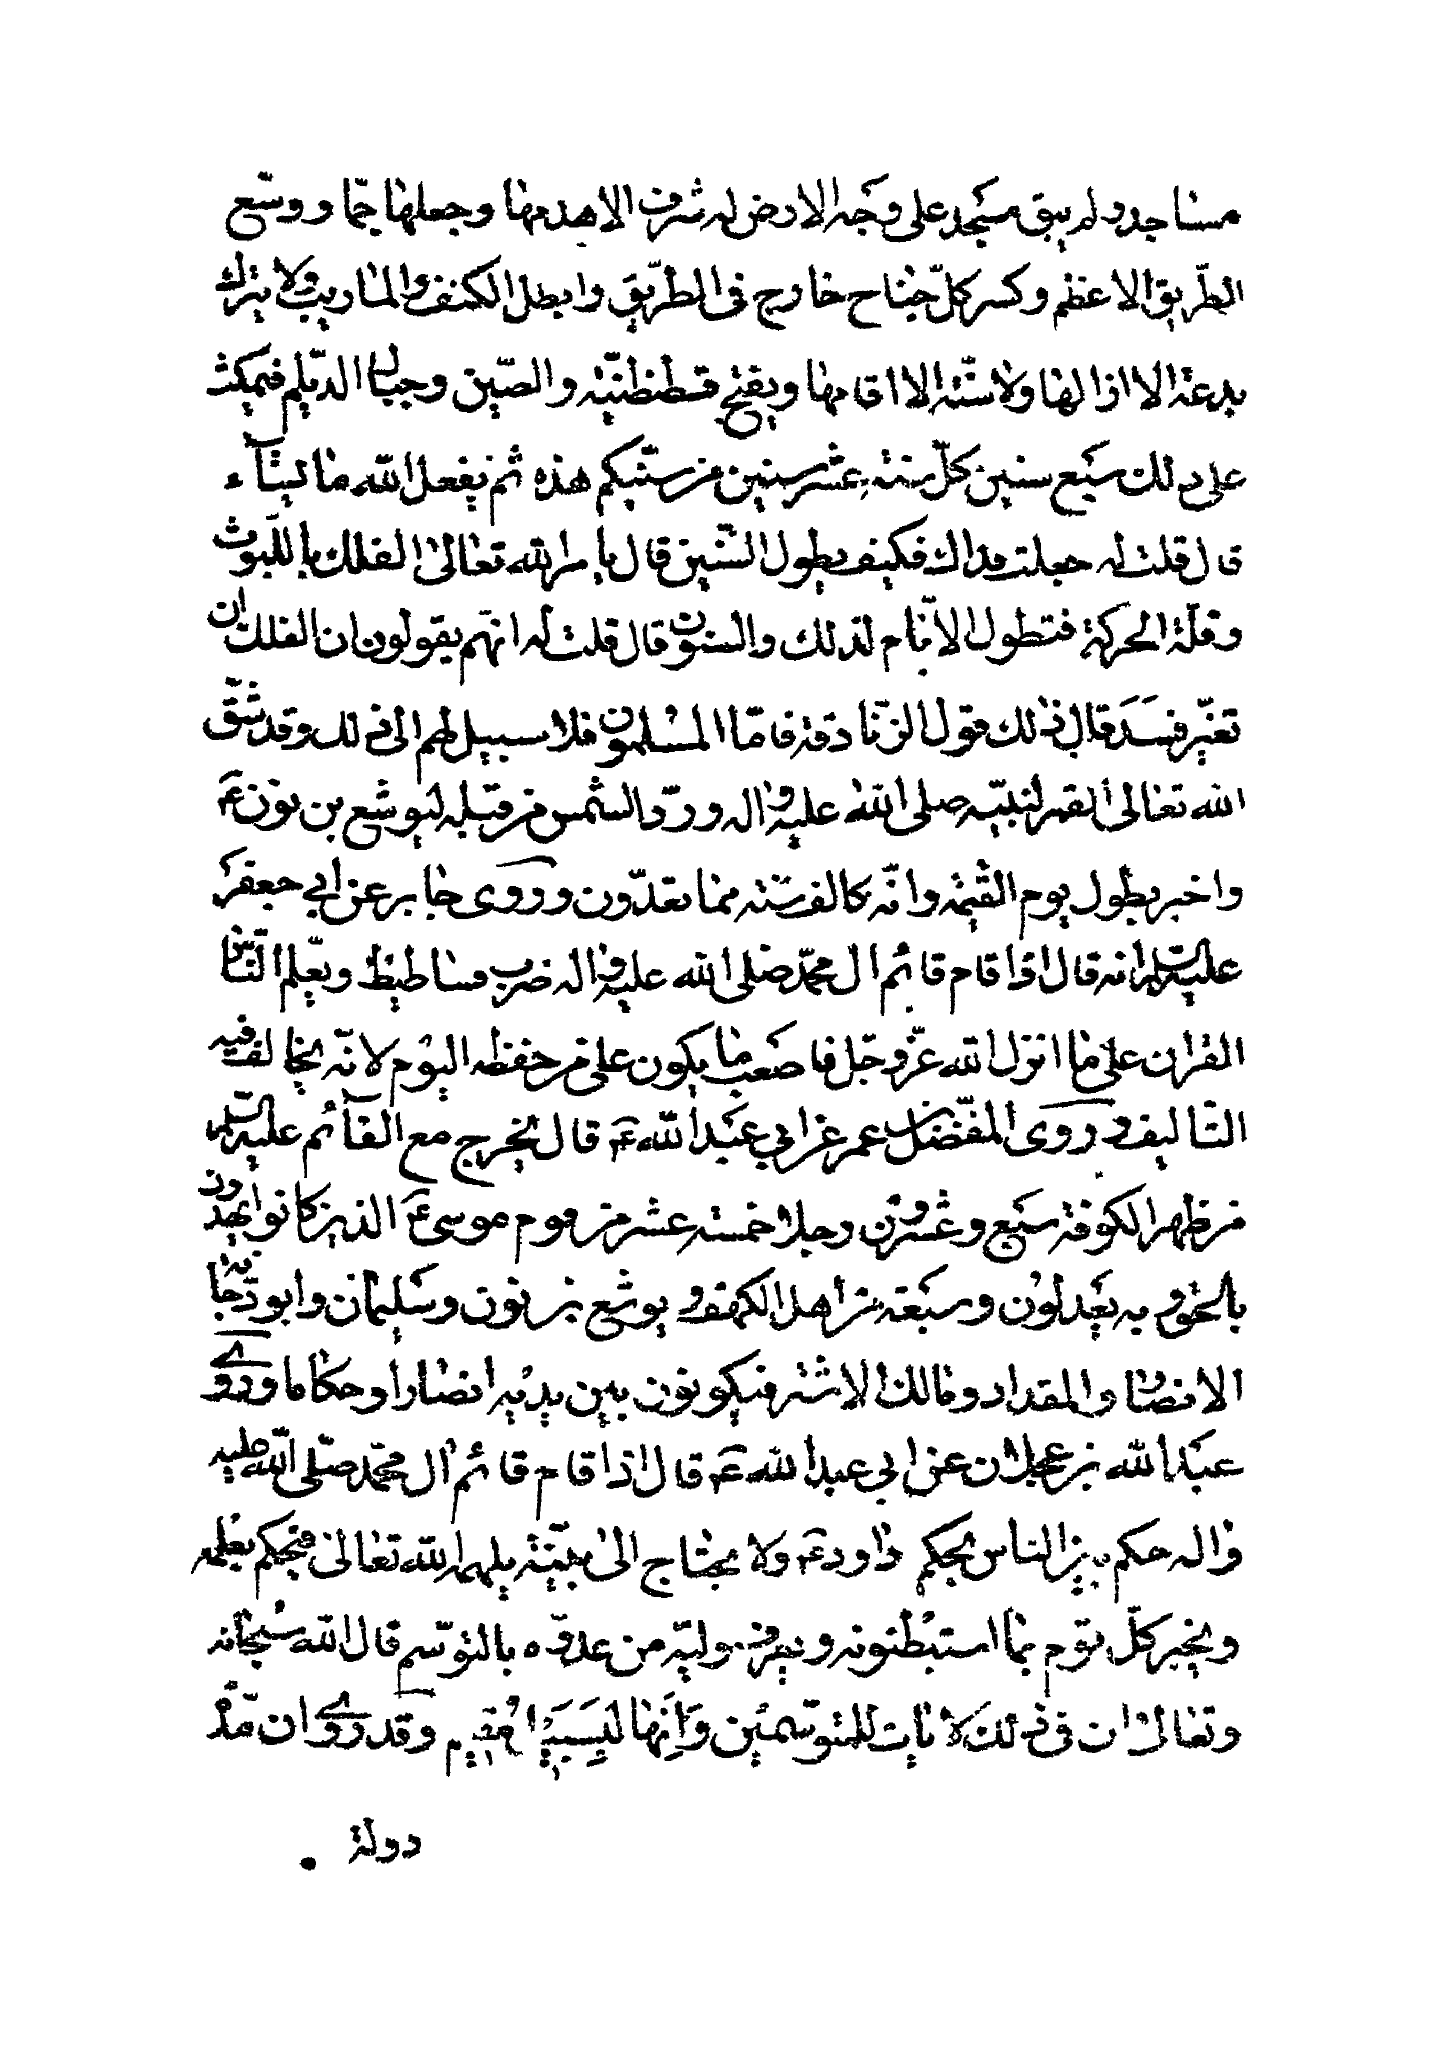 مساجد ولم يبق مسجد على وجه الارض له شرف الا هدمها وجعلها جمّا ووسّع
الطّريق الاعظم وكسر كلّ جناح خارج فى الطّريق وابطل الكنف والمازيب ولا يترك
بدعة الا ازالها ولا سنّة الا اقامها ويفتح قسطنطنيّة والصّين وجبال الدّيلم فيمكث
على ذلك سبع سنين كلّ سنة عشر سنين من سنّيكم هذه ثم يفعل الله ما يشآء
قال قلت له جعلت فداك فكيف يطول السّنين قال يامر الله تعالى الفلك باللّبوث
وقلّة الحركة فتطول الايّام لذلك والسنون قال قلت له انهّم يقولون ان الفلك ان
تغيّر فسد قال ذلك قول الزّنادقة فامّا المسلمون فلا سبيل لهم الى ذلك وقد شقّ
الله تعالى القمر لنبيّه صلى الله عليه واله وردّ الشمس من قبله ليوشع بن نون ع
واخبر بطول يوم القيمة وانّه كالف سنة مما تعدّون وروى جابر عن ابي جعفر
عليه السلم انه قال اذا قام قائم ال محمّد صلى الله عليه واله ضرب فساطيط ويعّلم النّاس
القران على ما انزل الله عزّ وجّل فاصعب ما يكون على من حفظه اليوم لانّه يخالف فيه
التّاليف وروى المفّضل بن عمر عن ابي عبد الله ع قال يخرج مع القآئم عليه السلم
من ظهر الكوفة سبع وعشرون رجلا خمسة عشر من قوم موسى ع الذين كانوا يهدون
بالحق وبه يعدلون وسبعة من اهل الكهف ويوشع بن نون وسليمان وابو دجانة
الانصارى والمقداد ومالك الاشتر فيكونون بين يديه انصارا وحكاما وروى
عبد الله بن عجلان عن ابي عبد الله ع قال اذا قام قائم ال محمّد صلّى الله عليه
واله حكم بين الناس بحكم داود ع ولا يحتاج الى بيّنة يلهمه الله تعالى فيحكم بعلمه
ويخبر كلّ قوم بما استبطنونه ويعرف وليّه من عدوّه بالتوسّم قال الله سبحانه
وتعالى ان فى ذلك لايات للمتوسّمين وَاِنّهَا لَبِسَبيلٍ مُقيم وقد روى ان مدّة
دولة